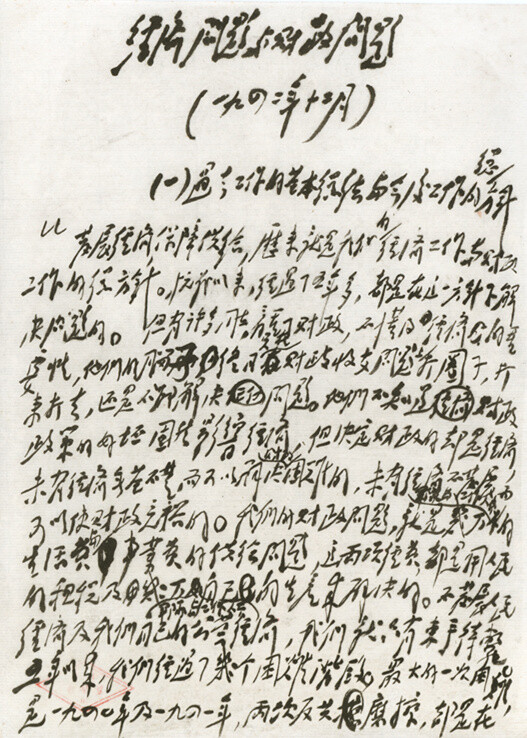 经济问题与财政问题
(一九四二年十二月)
(一)过去工作的基本总结与今后工作的总方针
发展经济保障供给,历来就是我们的经济工作与财政
工作的总方针。抗战以来,经过了五年多,都是在这一方针下解
决问题的。但有许多同志,片面看重财政,不懂得经济的重
要性,他们的脑子终日在财政收支问题上兜圈子,打
来打去,还是不能解决问题。他们不知道财政
政策的好坏固然影响经济,但决定财政的却是经济,
未有经济无基础而可以解决财政困难的,未有经济不发展而
可以使财政充裕的。我们的财政问题,就是
生活费事业费的供给问题,这两项经费都是用人民
的租税及的生产来解决的。不发展人民
经济及我们自己的公营经济,我们就只有束手待毙。
五年以来,我们经过了几个困难阶段,最大的一次困难,
是一九四〇年及一九四一年,两次反共磨擦,都是在